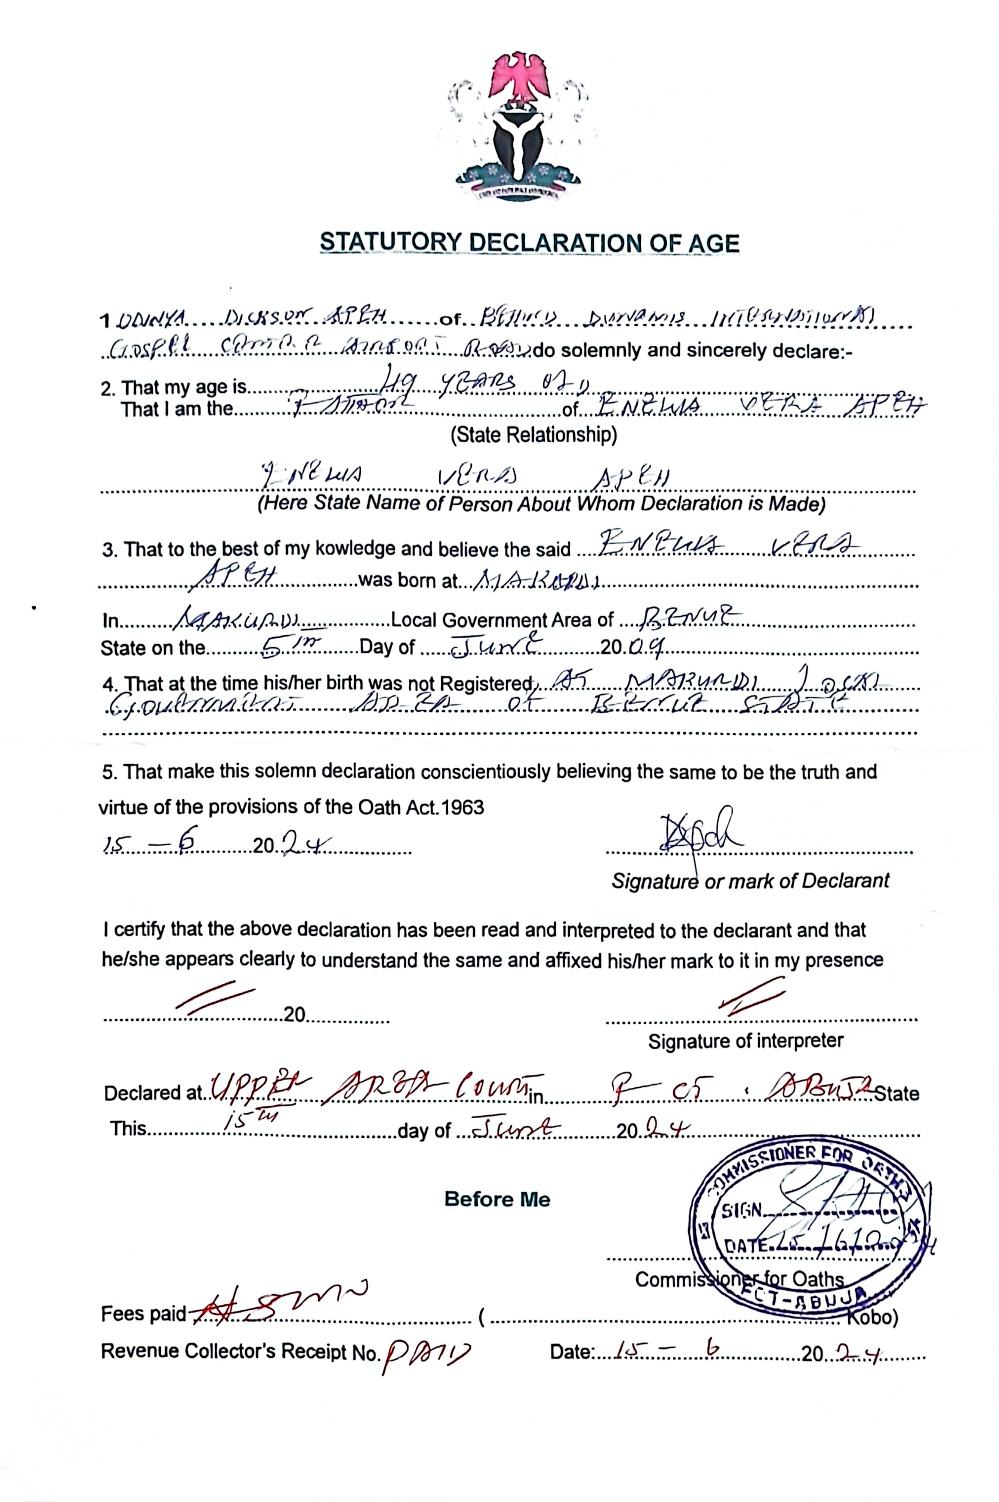 STATUTORY DECLARATION OF AGE
1 ODNYA DICKSON APEH of BEHIND DUNAMIS INTERNATIONAL
GOSPEL CENTRE AIRPORT ROAD do solemnly and sincerely declare:-
2. That my age is 49 YEARS OLD
That I am the FATHER of ENEWA VERA APEH
(State Relationship)
ENEWA VERA APEH
(Here State Name of Person About Whom Declaration is Made)
3. That to the best of my kowledge and believe the said ENEWA VERA
APEH was born at MAKURDI
In MAKURDI Local Government Area of BENUE
State on the 5TH Day of JUNE 2009
4. That at the time his/her birth was not Registered, AT MAKURDI LOCAL
GOVERNMENT AREA OF BENUE STATE
5. That make this solemn declaration conscientiously believing the same to be the truth and
virtue of the provisions of the Oath Act.1963
15 - 6 2024
Signature or mark of Declarant
I certify that the above declaration has been read and interpreted to the declarant and that
he/she appears clearly to understand the same and affixed his/her mark to it in my presence
20
Signature of interpreter
Declared at UPPER AREA COURT in F CT . ABUJA State
This 15TH day of JUNE 2024
COMMISSIONER FOR OATHS
Before Me
SIGN
DATE 15/6/2024
Commissioner for Oaths
FCT-ABUJA
Fees paid ( Kobo)
Revenue Collector's Receipt No. PAID Date: 15 - 6 2024